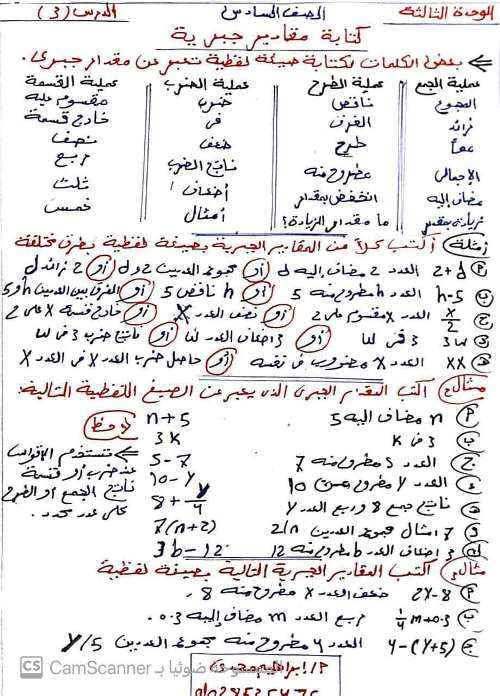 الوحدة الثالثة الصف السادس الدرس (3)
كتابة مقادير جبرية
بعض الكلمات لكتابة صيغة لفظية تعبر عن مقدار جبرى.
عملية الجمع عملية الطرح عملية الضرب عملية القسمة
المجموع ناقص ضرب مقسوم عليه
زائد الفرق فى خارج قسمة
معاً طرح ضعف نصف
الإجمالى مطروح منه ناتج الضرب ربع
مضاف إليه انخفض بمقدار أضعاف ثلث
زيادة بمقدار ما مقدار الزيادة؟ أمثال خمس
أمثلة اكتب كلاً من المقادير الجبرية بصيغة لفظية بطرق مختلفة
أ) 2+d العدد 2 مضاف إليه d أو مجموع العددين 2 و d أو 2 زائد d
ب) h-5 العدد h مطروح منه 5 أو h ناقص 5 أو الفرق بين العددين h و 5
ج) x/2 العدد x مقسوم على 2 أو نصف العدد x أو خارج قسمة x على 2
د) 3w 3 فى w أو 3 أضعاف العدد w أو ناتج ضرب 3 فى w
هـ) xx العدد x مضروب فى نفسه أو حاصل ضرب العدد x فى العدد x
مثال2 اكتب المقدار الجبرى الذى يعبر عن الصيغ اللفظية التالية:
أ) n مضاف إليه 5 n+5
ب) 3 فى k 3k
ج) العدد 5 مطروح منه 7 5-7
د) العدد y مطروح من 10 10-y
هـ) ناتج جمع 8 وربع العدد y 8+y/4
و) 7 أمثال مجموع العددين 2، n 7(n+2)
ى) 3 أضعاف العدد b مطروح منه 12 3b-12
لاحظ
تستخدم الأقواس
عند ضرب أو قسمة
ناتج الجمع أو الطرح
على عدد محدد.
مثال3 اكتب المقادير الجبرية التالية بصيغة لفظية
أ) 2x-8 ضعف العدد x مطروح منه 8.
ب) 1/4 m+0.3 ربع العدد m مضاف إليه 0.3
ج) y-(y+5) العدد y مطروح منه مجموع العددين y/5
CS CamScanner الممسوحة ضوئيا بـ